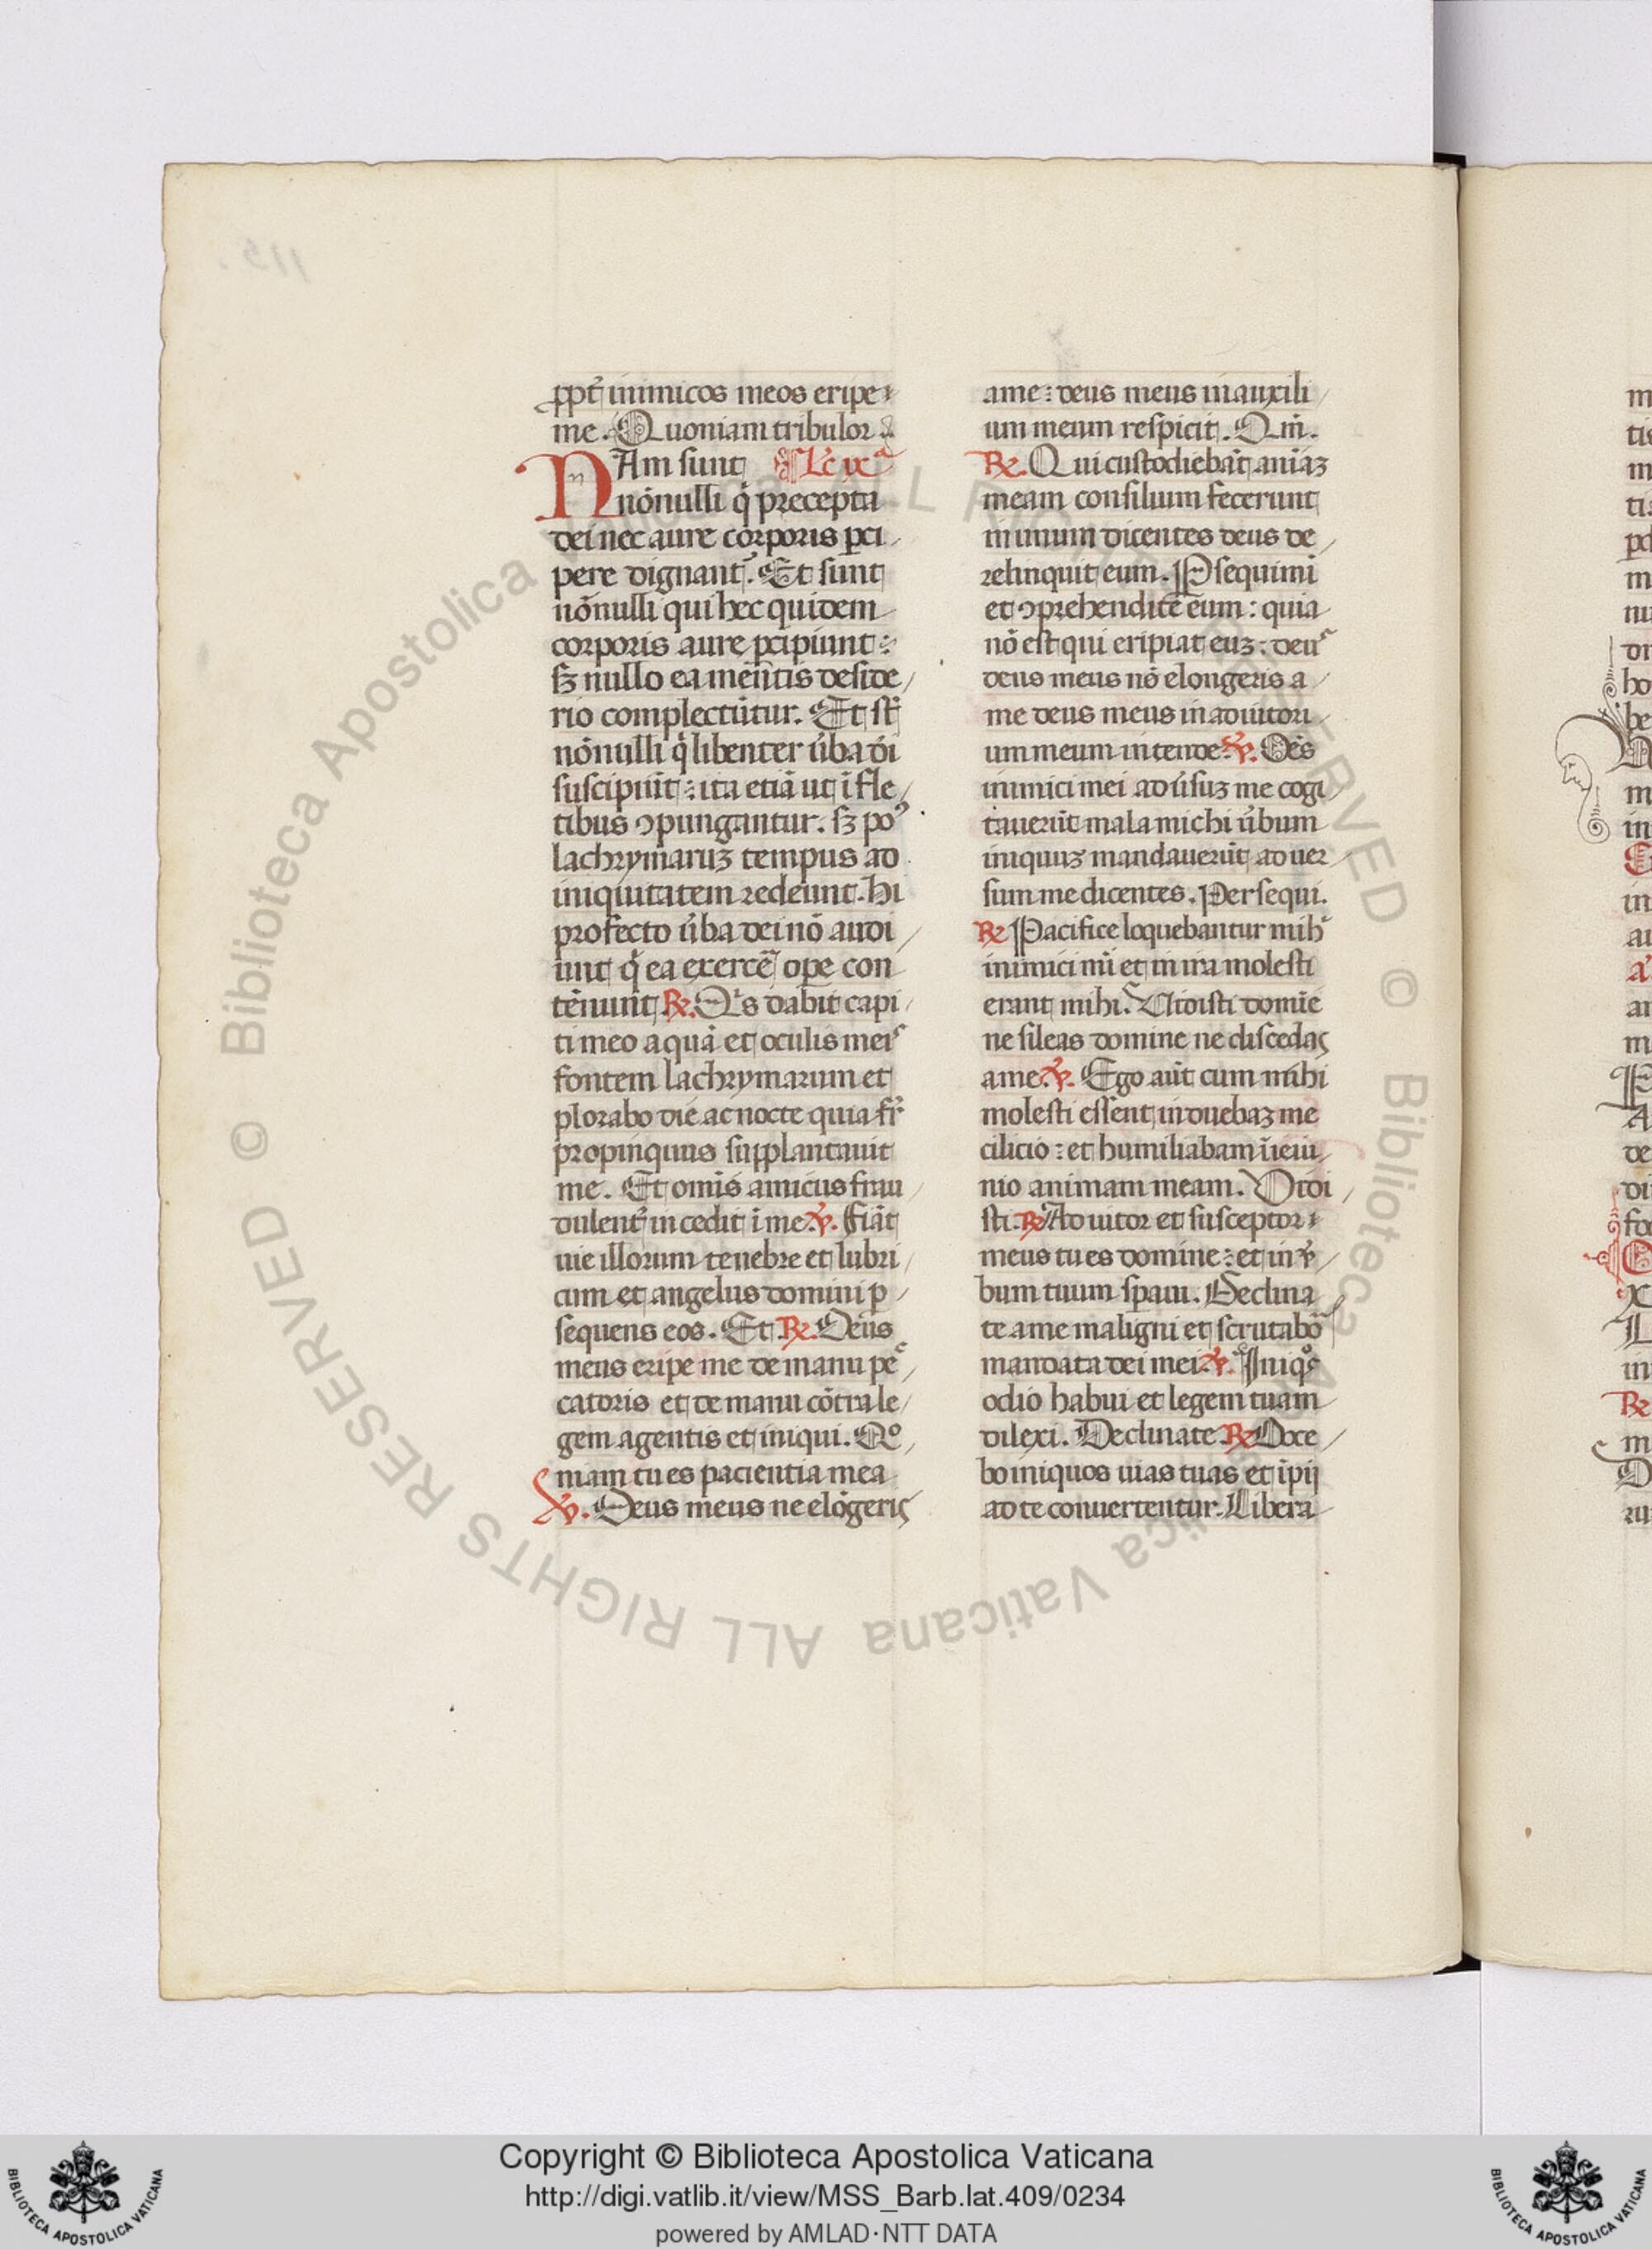 ppt̉ inimicos meos eripe
me. Quoniam tribulor.
NAm sunt Lc̄ ixᵃ
nōnulli q̇ precepta
dei nec aure corporis ꝑci
pere dignantᷣ. Et sunt
nōnulli qui hec quidem
corporis aure ꝑcipiunt:
sꝫ nullo ea mētis deside
rio complectūtur. Et st̄
nōnulli q̇ libenter ūba dī
suscipiūt: ita etiā ut ī fle
tibus ꝯpungantur. sꝫ poꝰ
lachrymaruꝫ tempus ad
iniquitatem redeunt. Hi
profecto ūba dei nō audi
unt q̇ ea exercē̄ ope con
tēnunt ℞. Qⁱs dabit capi
ti meo aquā et oculis meis
fontem lachrymarum et
plorabo die ac nocte quia fr̄
propinquus supplantauit
me. Et omīs amicus frau
dulentᷣ incedit ī me ℣. Fiāt
uie illorum tenebre et lubri
cum et angelus domini ꝑ
sequens eos. Et ℞. Deus
meus eripe me de manu pec
catoris et de manu cōtra le
gem agentis et iniqui. Qº
niam tu es pacientia mea
℣. Deus meus ne elōgeris
a me: deus meus in auxili
um meum respicit. Qm̄.
℞. Qui custodiebāt aniāꝫ
meam consilium fecerunt
in unum dicentes deus de
relinquit eum. Psequimi
et ꝯprehendite eum: quia
nō est qui eripiat euꝫ: deus
deus meus nō elongeris a
me deus meus in adiutori
um meum intende. ℣. Oēs
inimici mei aduūsuꝫ me cogi
tauerūt mala michi ūbum
iniquuꝫ mandauerūt aduer
sum me dicentes. Persequi.
℞ Pacifice loquebantur mihˢ
inimici mī et in ira molesti
erant mihi. Uidisti domīe
ne sileas domine ne discedas
a me. ℣. Ego aūt cum mihi
molesti essent, induebaꝫ me
cilicio: et humiliabam ī ieiu
nio animam meam. Vidi
sti. ℞ Adiutor et susceptor
meus tu es domine: et in ū
bum tuum spaui. Declina
te a me maligni et scrutabor
mandata dei mei. ℣. Iniqºs
odio habui et legem tuam
dilexi. Declinate ℞ Doce
bo iniquos uias tuas et īpij
ad te conuertentur. Libera
Copyright © Biblioteca Apostolica Vaticana
http://digi.vatlib.it/view/MSS_Barb.lat.409/0234
powered by AMLAD·NTT DATA